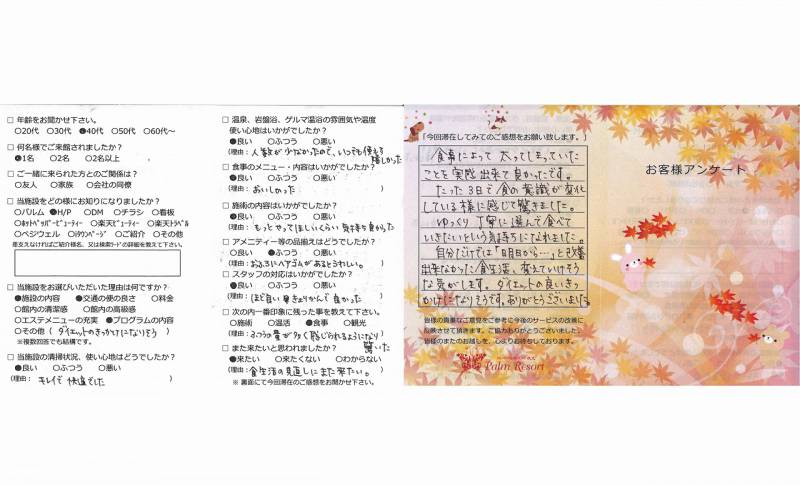 □ 年齢をお聞かせ下さい。
○20代 ○30代 ●40代 ○50代 ○60代～
□ 何名様でご来館されましたか?
●1名 ○2名 ○2名以上
□ ご一緒に来られた方とのご関係は?
○友人 ○家族 ○会社の同僚
□ 当施設をどの様にお知りになりましたか?
○パルム ●H/P ○DM ○チラシ ○看板
○ホットペッパービューティー ○楽天ビューティー ○楽天トラベル
○ベジウェル ○iタウンページ ○ご紹介 ○その他
差支えなければご紹介様名、又は検索ワードの詳細を教えて下さい。
□ 当施設をお選びいただいた理由は何ですか?
●施設の内容 ●交通の便の良さ ○料金
○館内の清潔感 ○館内の高級感
○エステメニューの充実 ●プログラムの内容
○その他 ( ダイエットのきっかけになりそう )
※複数回答でも結構です。
□ 当施設の清掃状況、使い心地はどうでしたか?
●良い ○ふつう ○悪い
(理由: キレイで快適でした )
□ 温泉、岩盤浴、ゲルマ温浴の雰囲気や温度
使い心地はいかがでしたか?
●良い ○ふつう ○悪い
(理由: 人数が少なかったので、いつでも使えて
嬉しかった
□ 食事のメニュー・内容はいかがでしたか?
●良い ○ふつう ○悪い
(理由: おいしかった )
□ 施術の内容はいかがでしたか?
●良い ○ふつう ○悪い
(理由: もっとやってほしいくらい気持ち良かった
□ アメニティー等の品揃えはどうでしたか?
○良い ●ふつう ○悪い
(理由: おふろにヘアゴムがあるとうれしい。
□ スタッフの対応はいかがでしたか?
●良い ○ふつう ○悪い
(理由: ほど良い距離かんで良かった )
□ 次の内一番印象に残った事を教えて下さい。
○施術 ○温活 ●食事 ○観光
(理由: ふつうの量が多く感じられるようになり )
驚いた
□ また来たいと思われましたか?
●来たい ○来たくない ○わからない
(理由: 食生活の見直しにまた来たい。 )
※ 裏面にて今回滞在のご感想をお聞かせ下さい。
「今回滞在してみてのご感想をお願い致します。」
食事によって太ってしまっていた
ことを実感出来て良かったです。
たった3日で食の意識が変化
している様に感じて驚きました。
ゆっくり丁寧に選んで食べて
いきたいという気持ちになれました。
自分だけでは「明日から…」と改善
出来なかった食生活、変えていけそう
な気がします。ダイエットの良いきっ
かけになりそうです。ありがとうございました。
皆様の貴重なご意見をご参考に今後のサービスの改善に
反映させて頂きます。ご協力ありがとうございました。
皆様のまたのお越しを、心よりお待ちしております。
Palm Resort
お客様アンケート